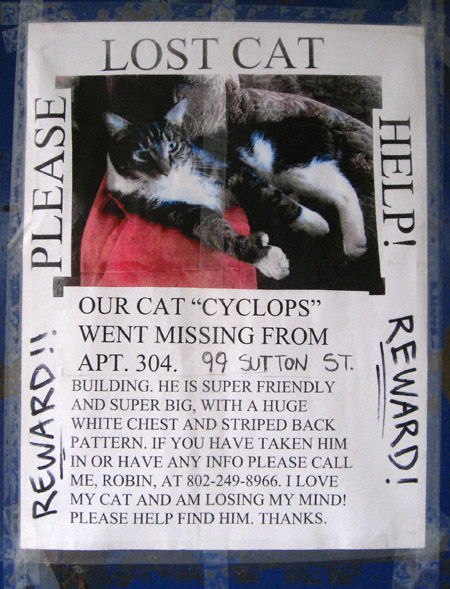 LOST CAT
PLEASE
HELP!
OUR CAT “CYCLOPS”
WENT MISSING FROM
APT. 304. 99 SUTTON ST.
BUILDING. HE IS SUPER FRIENDLY
AND SUPER BIG, WITH A HUGE
WHITE CHEST AND STRIPED BACK
PATTERN. IF YOU HAVE TAKEN HIM
IN OR HAVE ANY INFO PLEASE CALL
ME, ROBIN, AT 802-249-8966. I LOVE
MY CAT AND AM LOSING MY MIND!
PLEASE HELP FIND HIM. THANKS.
REWARD!!
REWARD!